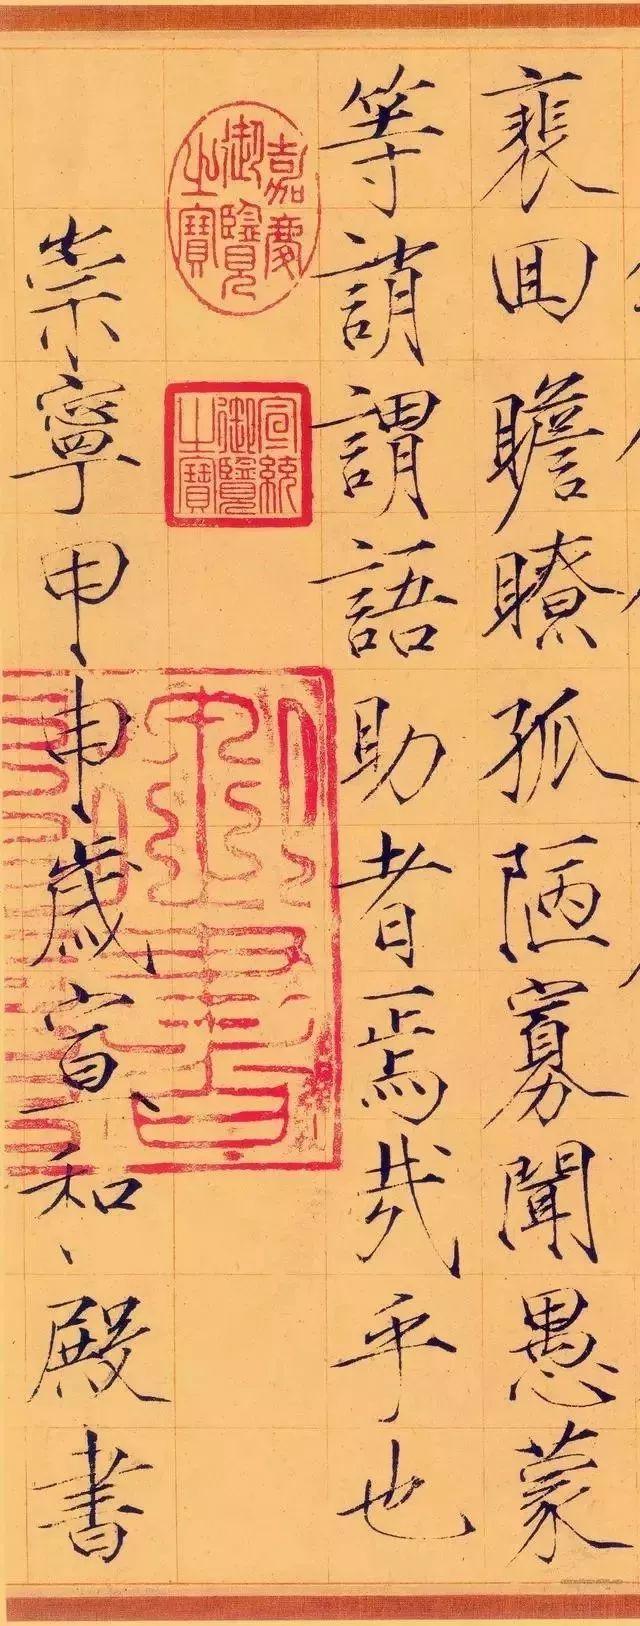 裵回瞻瞭孤陋寡聞愚蒙
等誚謂語助者焉哉乎也
嘉慶
御覽
之寶
宣統
御覽
之寶
崇寧甲申歲宣和殿書